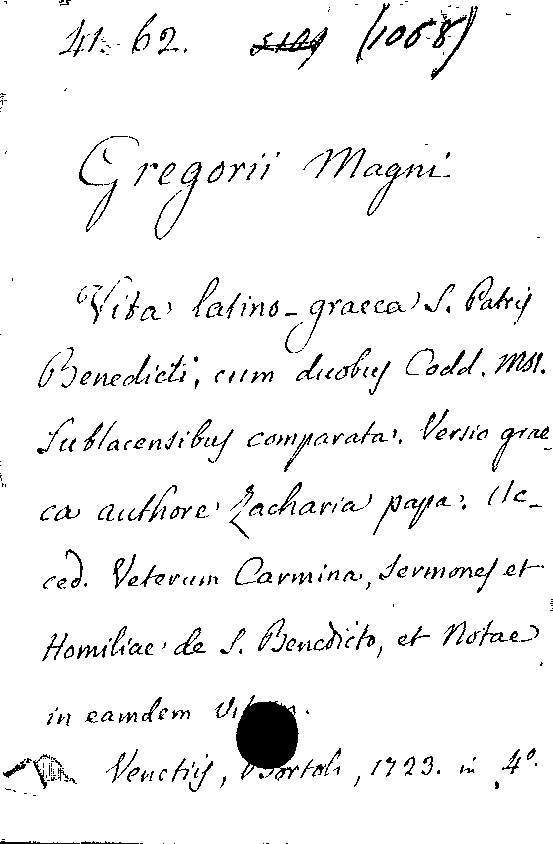 41. 62. 5109 (1068)
Gregorii Magni
Vita latino-graeca S. Patris
Benedicti, cum duobus Codd. Mss.
Sublacensibus comparata. Versio grae-
ca authore Zacharia papa. Ac-
ced. Veterum Carmina, Sermones et
Homiliae de S. Benedicto, et Notae
in eamdem
Venetiis, Bortoli, 1723. in 4º.